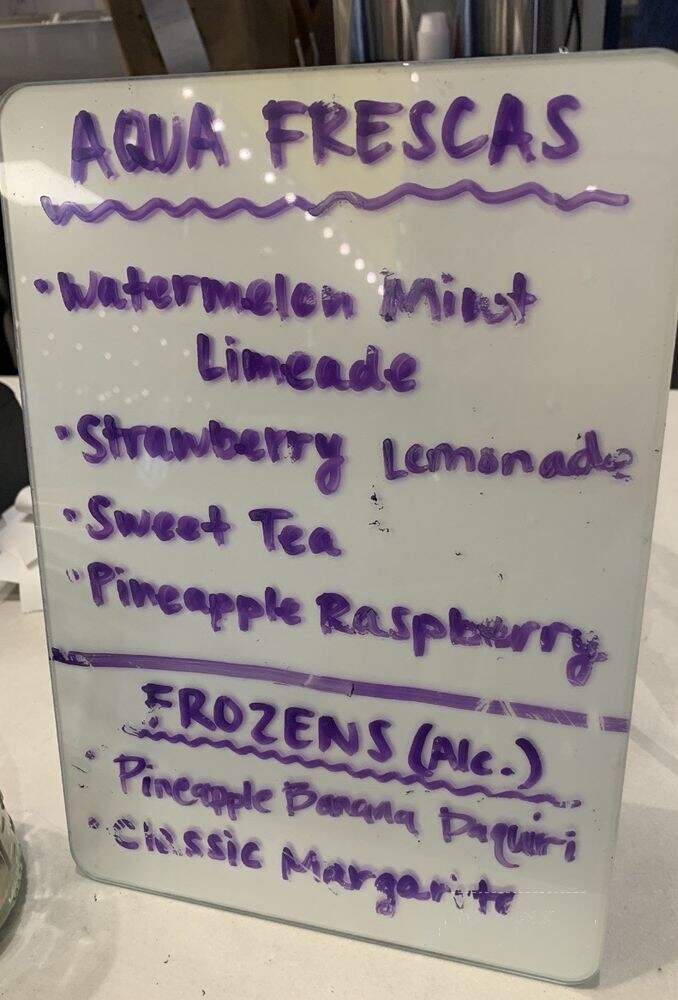 AQUA FRESCAS
• Watermelon Mint
Limeade
• Strawberry Lemonade
• Sweet Tea
• Pineapple Raspberry
FROZENS (Alc.)
• Pineapple Banana Daquiri
• Classic Margarita